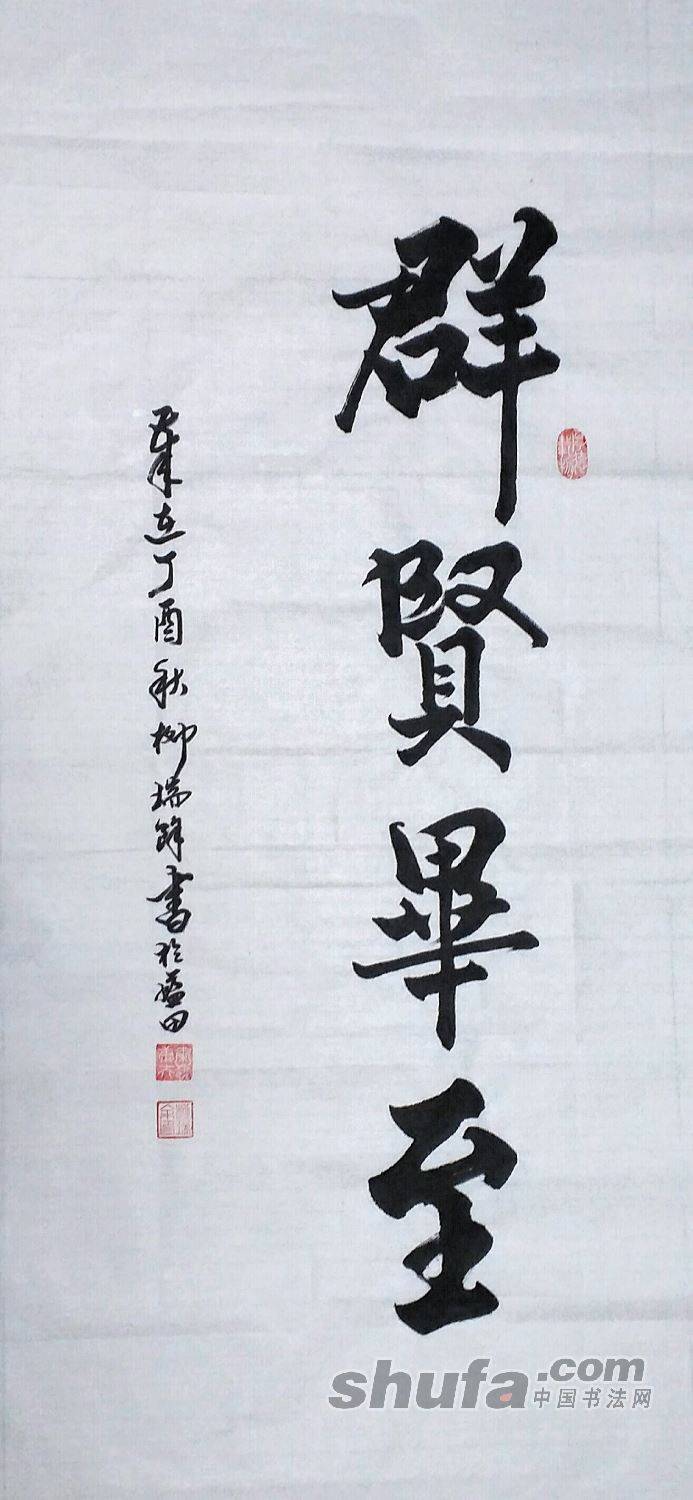 群賢畢至
歲在丁酉秋柳瑞鋒書於藍田
shufa.com
中国书法网